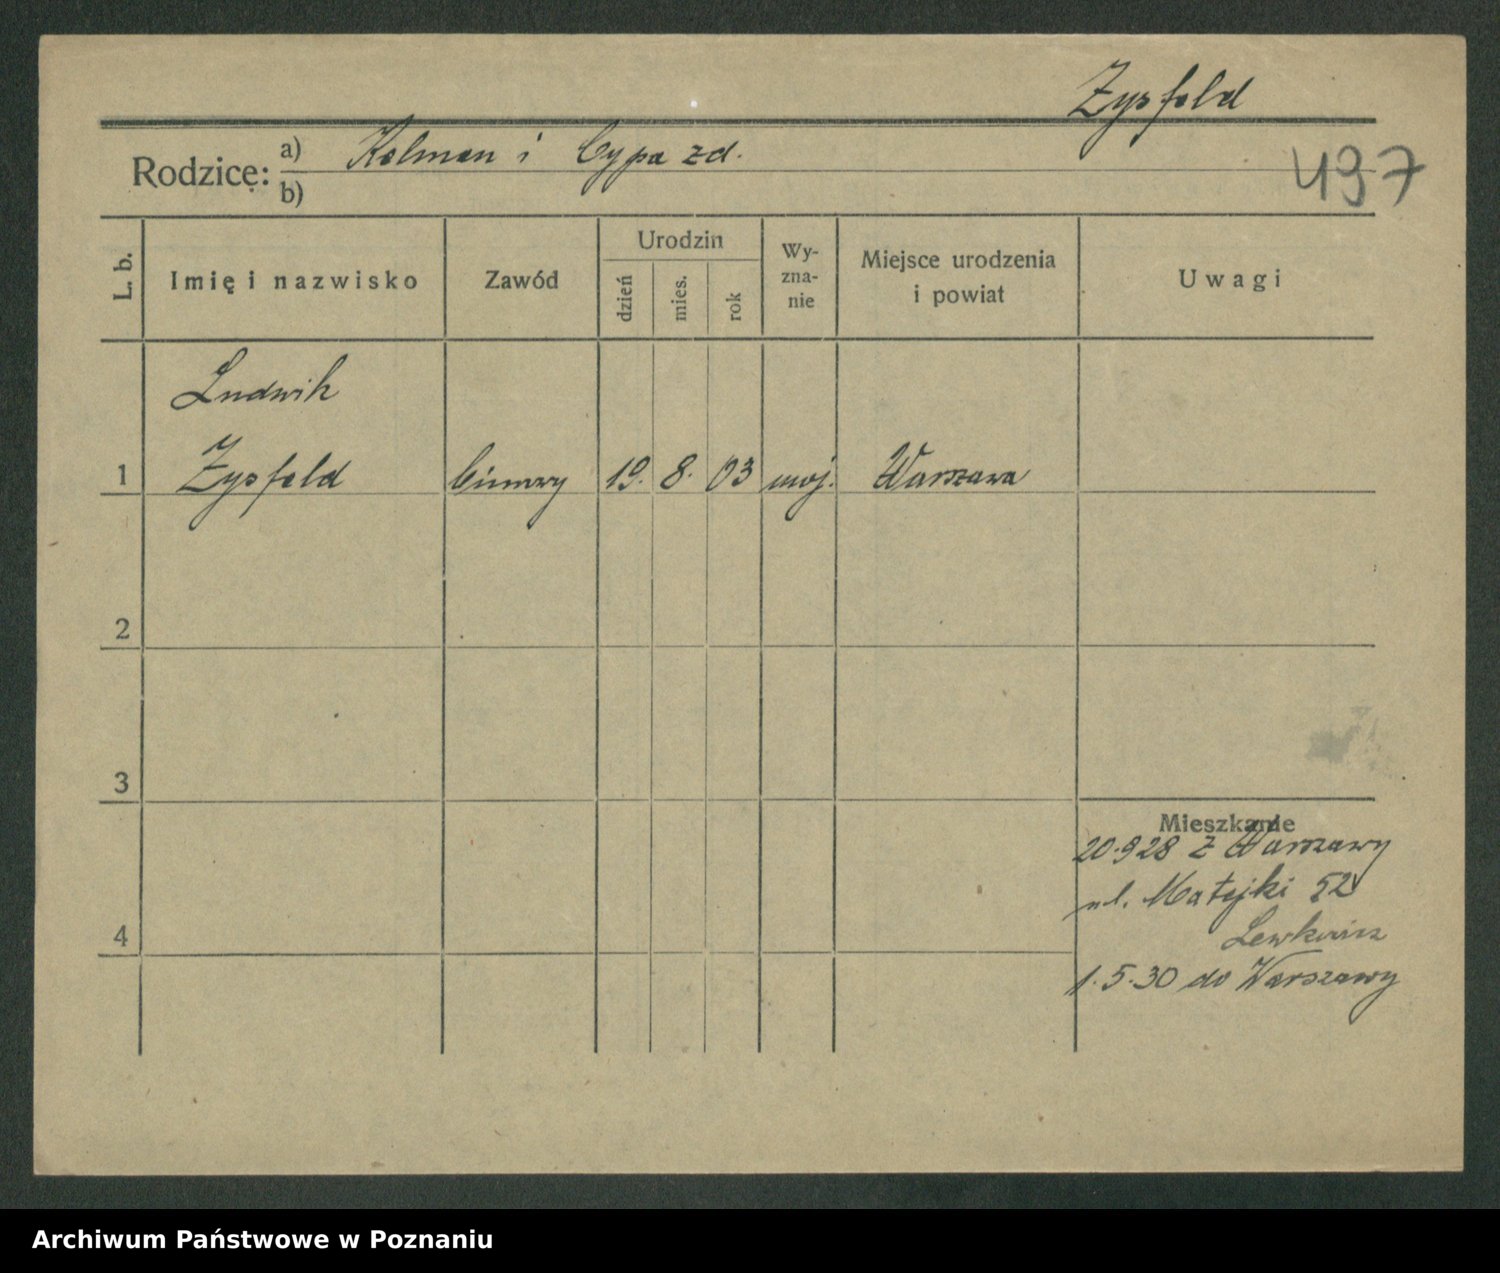 Zysfeld
Rodzice: a) Kelman i Cypa zd.
b)
497
L. b.
Imię i nazwisko
Zawód
Urodzin
dzień
mies.
rok
Wy-
zna-
nie
Miejsce urodzenia
i powiat
Uwagi
Ludwik
1 Zysfeld 19. 8. 03 moj. Warszawa
2
3
4
Mieszkanie
20.9 28 z Warszawy
ul. Matejki 52
Lewkowicz
1.5.30 do Warszawy
Archiwum Państwowe w Poznaniu